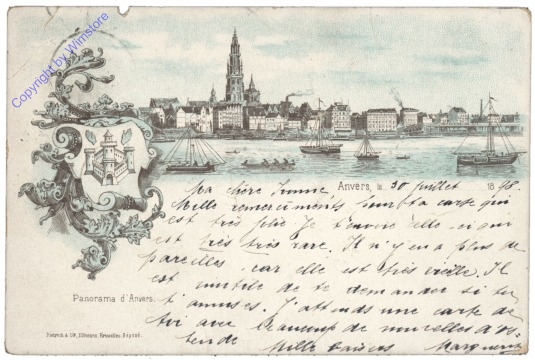 Copyright by Winstore
Anvers, le 30 juillet 1898.
Ma chère Yvonne
Mille remerciments pour ta carte qui
est très jolie. Je t'envoie celle-ci qui
est très très rare. Il n'y en a plus de
pareilles, car elle est très vieille. Il
est inutile de te demander si tu
t'amuses. J'attends une carte de
toi avec beaucoup de nouvelles d'Os-
tende Mille baisers Marguerite
Panorama d'Anvers.
Bruxelles. Déposé.